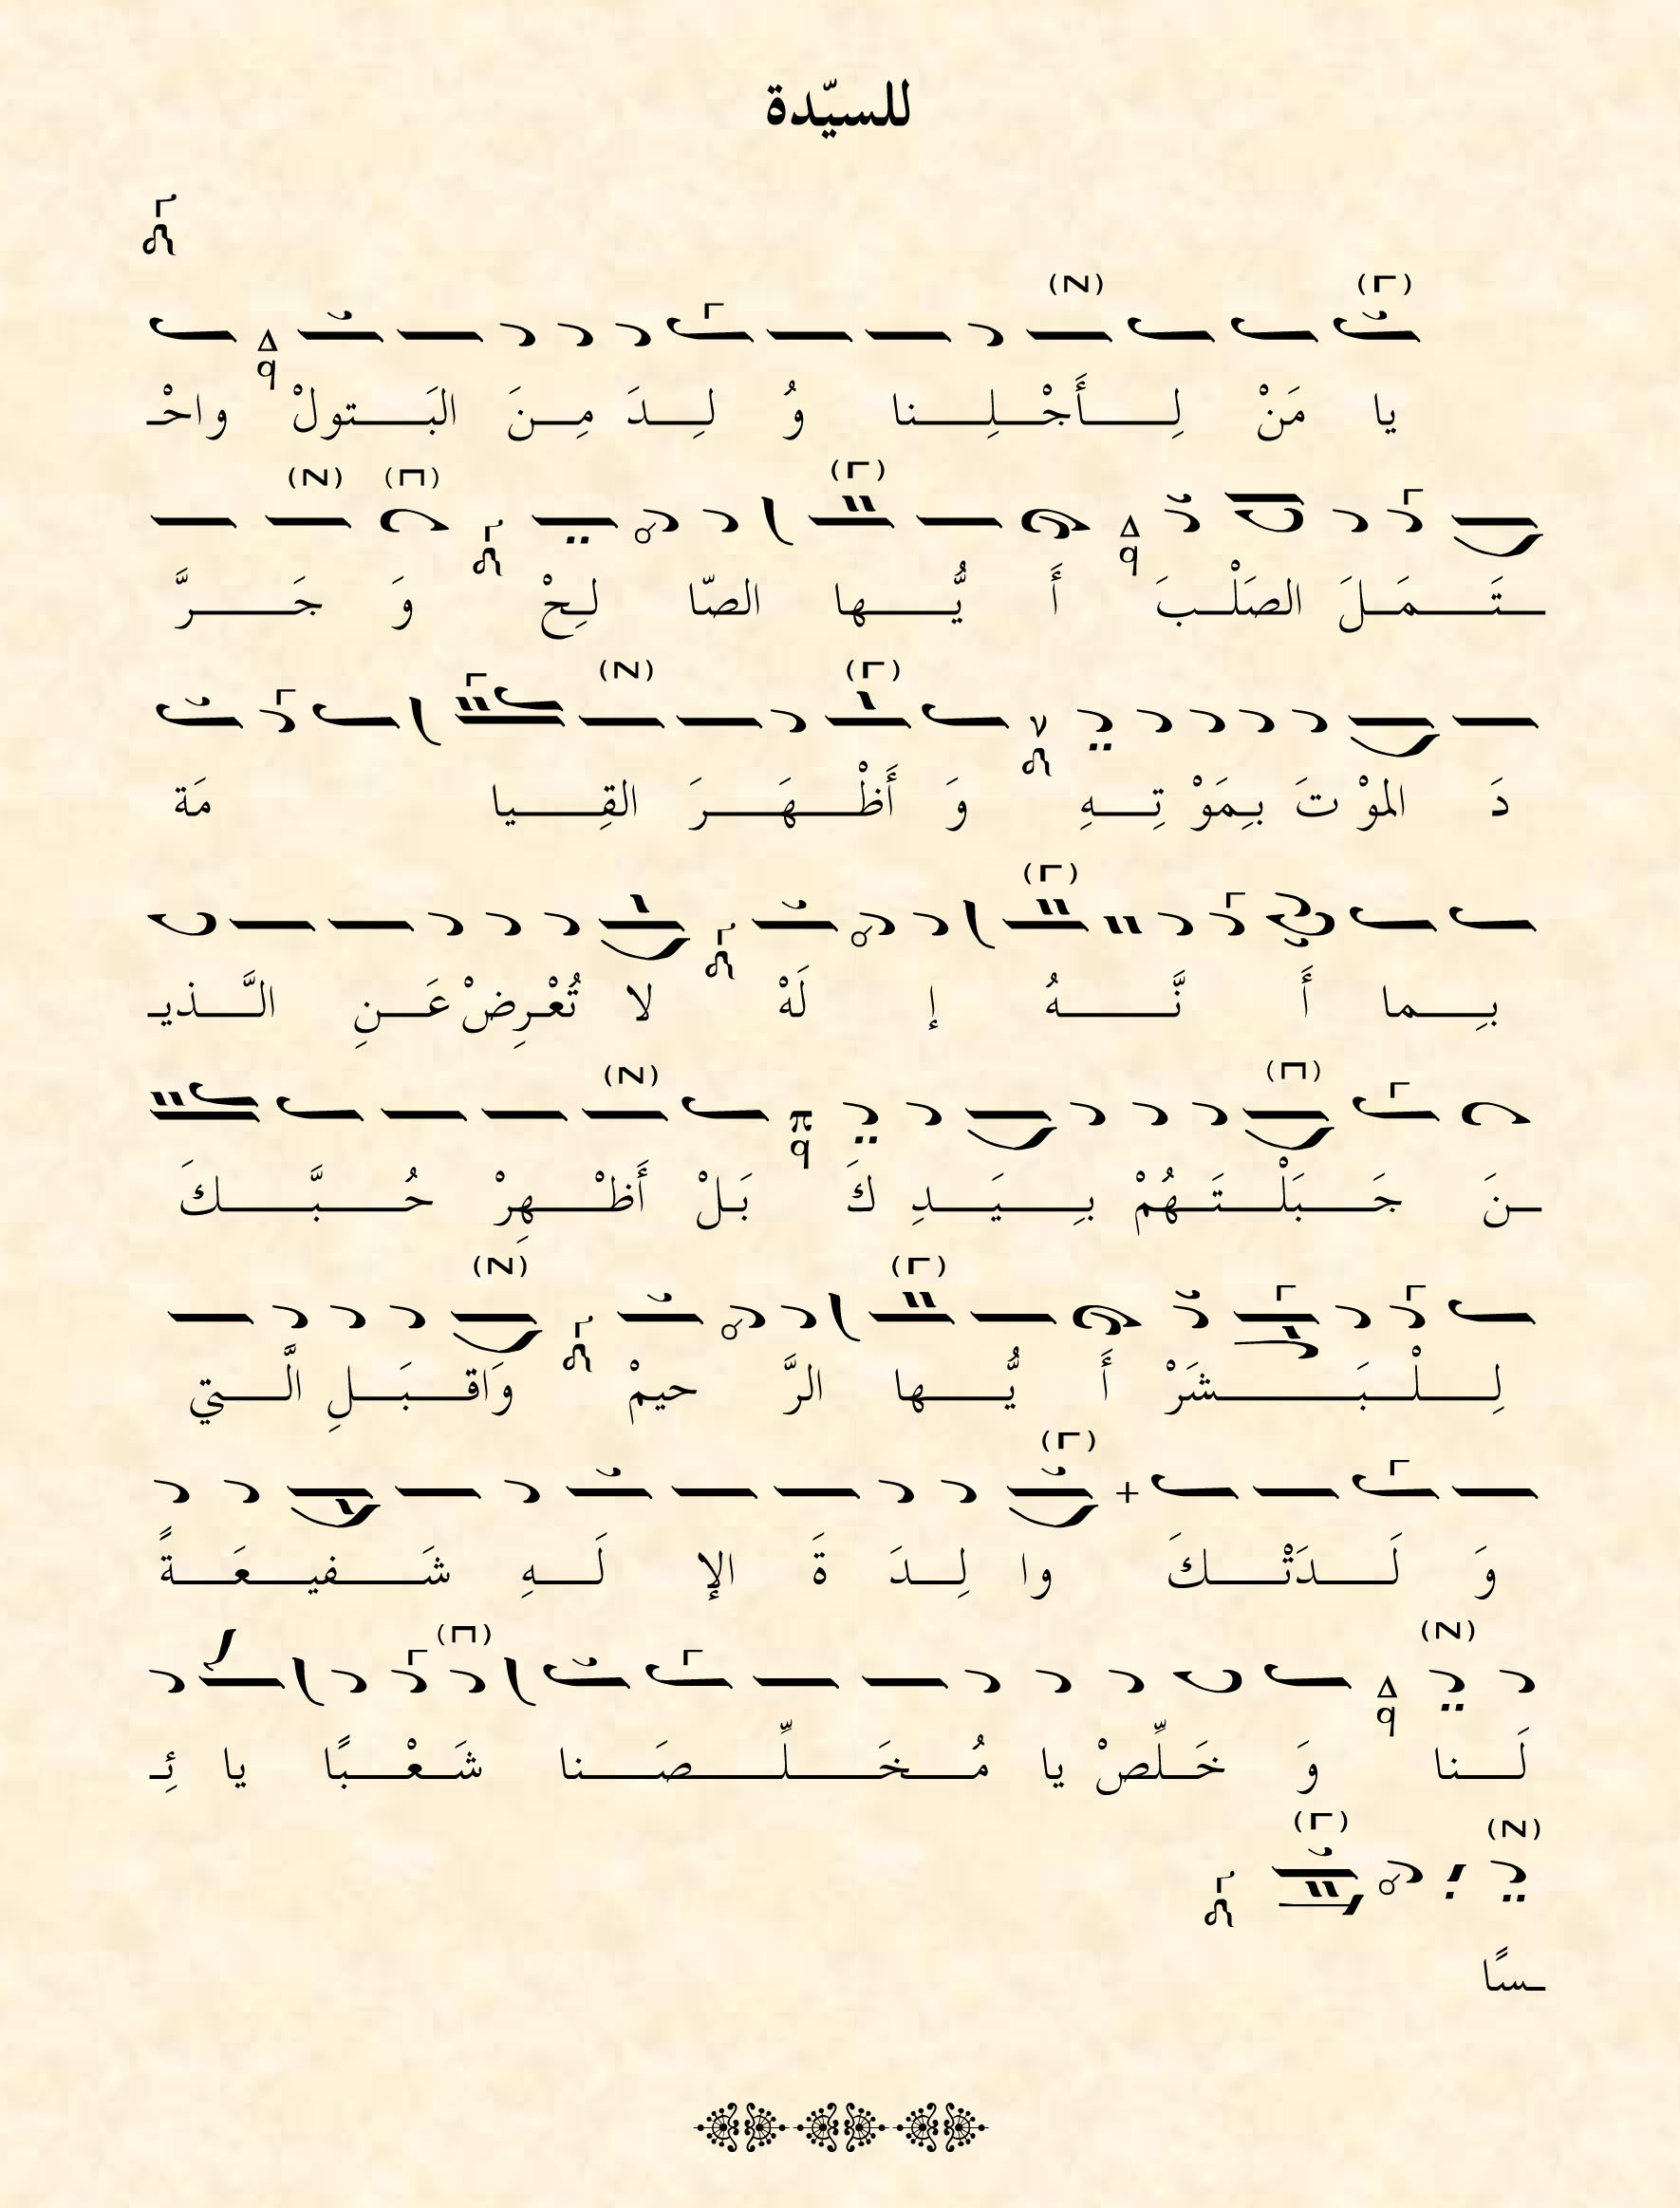 للسيّدة
يا مَنْ لِأَجْلِنا وُلِدَ مِنَ البَتولْ واحْـ
ـتَمَلَ الصَلْبَ أَيُّها الصّالِحْ وَجَرَّ
دَ الموْتَ بِمَوْتِهِ وَأَظْهَرَ القِيامَة
بِما أَنَّهُ إلَهْ لا تُعْرِضْ عَنِ الَّذيـ
ـنَ جَبَلْتَهُمْ بِيَدِكَ بَلْ أَظْهِرْ حُبَّكَ
لِلْبَشَرْ أَيُّها الرَّحيمْ وَاقبَلِ الَّتي
وَلَدَتْكَ والِدَةَ الإلَهِ شَفيعَةً
لَنا وَخَلِّصْ يا مُخَلِّصَنا شَعْبًا يائِـ
ـسًا